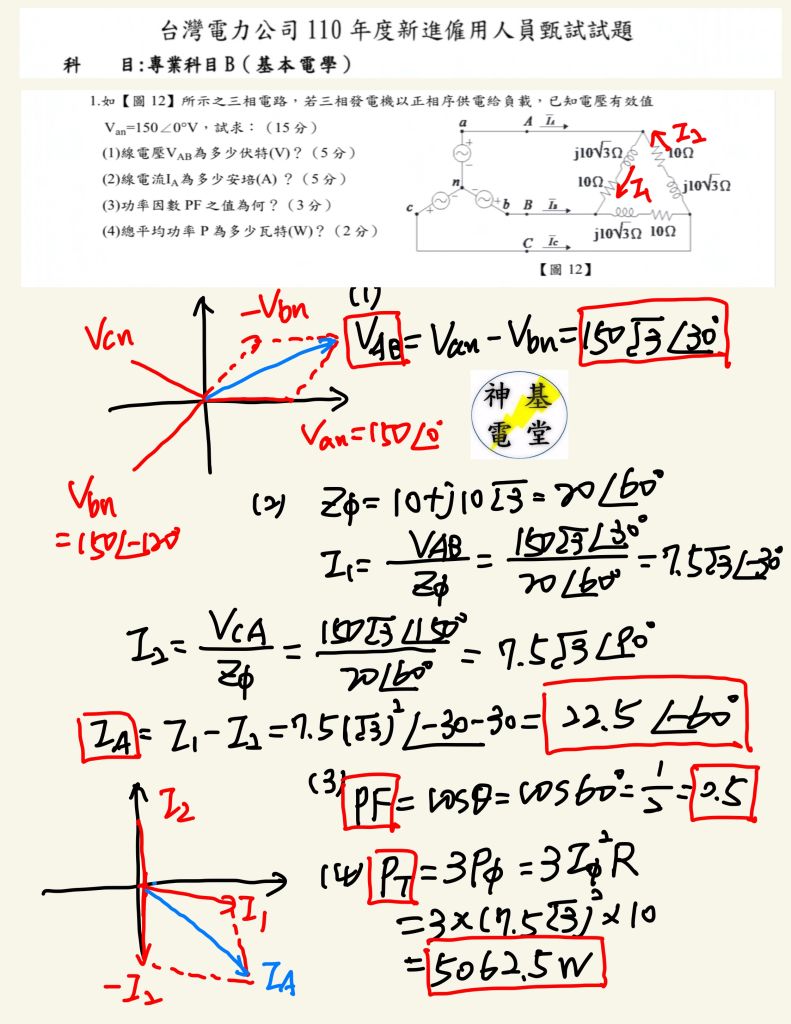 台灣電力公司 110 年度新進僱用人員甄試試題
科 目:專業科目 B（基本電學）
1.如【圖 12】所示之三相電路，若三相發電機以正相序供電給負載，已知電壓有效值
Van=150∠0°V，試求：（15 分）
(1)線電壓VAB為多少伏特(V)？（5 分）
(2)線電流IA為多少安培(A) ？（5 分）
(3)功率因數 PF 之值為何？（3 分）
(4)總平均功率 P 為多少瓦特(W)？（2 分）
a A IA I2
j10√3Ω 10Ω
n 10Ω I1 j10√3Ω
c b B IB
j10√3Ω 10Ω
C IC
【圖 12】
(1)
VAB = Van - Vbn = 150√3∠30°
Vcn -Vbn
Van=150∠0°
Vbn
=150∠-120°
神 基
電 堂
(2) Zφ = 10+j10√3 = 20∠60°
I1 = VAB/Zφ = 150√3∠30°/20∠60° = 7.5√3∠-30°
I2 = VCA/Zφ = 150√3∠150°/20∠60° = 7.5√3∠90°
IA = I1 - I2 = 7.5(√3)²∠-30-30 = 22.5∠-60°
(3) PF = cosθ = cos60° = 1/2 = 0.5
I2
I1
-I2 IA
(4) PT = 3Pφ = 3Iφ²R
= 3×(7.5√3)²×10
= 5062.5W